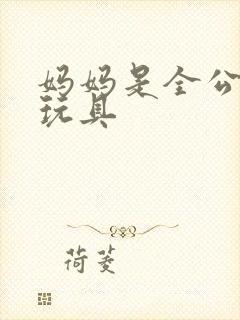 妈妈是全公
玩具
荷菱